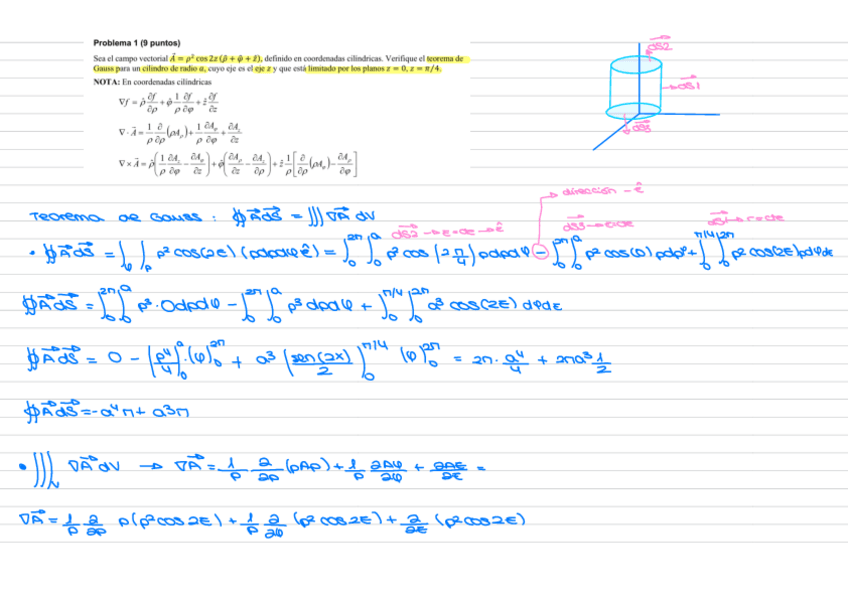 Problema 1 (9 puntos)
Sea el campo vectorial A⃗ = ρ² cos 2z (ρ̂ + φ̂ + ẑ), definido en coordenadas cilíndricas. Verifique el teorema de
Gauss para un cilindro de radio a, cuyo eje es el eje z y que está limitado por los planos z = 0, z = π/4.
NOTA: En coordenadas cilíndricas
∇f = ρ̂ ∂f/∂ρ + φ̂ 1/ρ ∂f/∂φ + ẑ ∂f/∂z
∇·A⃗ = 1/ρ ∂/∂ρ (ρA_ρ) + 1/ρ ∂A_φ/∂φ + ∂A_z/∂z
∇×A⃗ = ρ̂(1/ρ ∂A_z/∂φ − ∂A_φ/∂z) + φ̂(∂A_ρ/∂z − ∂A_z/∂ρ) + ẑ 1/ρ [∂/∂ρ (ρA_φ) − ∂A_ρ/∂φ]
dS2
dS1
dS3
dirección - ẑ
Teorema de Gauss : ∯ A⃗ dS⃗ = ∭ ∇A⃗ dV
dS2 → z=cte → ẑ
dS3 → z=cte
dS1 → r=cte
• ∯ A⃗ dS⃗ = ∫φ ∫ρ ρ² cos(2z) (ρdρdφ ẑ) = ∫₀^2π ∫₀^a ρ² cos (2 π/4) ρdρdφ − ∫₀^2π ∫₀^a ρ² cos(0) ρdρ + ∫₀^π/4 ∫₀^2π ρ² cos(2z) ρdφdz
∯ A⃗ dS⃗ = ∫₀^2π ∫₀^a ρ³ · 0 dρdφ − ∫₀^2π ∫₀^a ρ³ dρdφ + ∫₀^π/4 ∫₀^2π a³ cos(2z) dφdz
∯ A⃗ dS⃗ = 0 − (ρ⁴/4)₀^a · (φ)₀^2π + a³ (sen(2x)/2)₀^π/4 (φ)₀^2π = 2π · a⁴/4 + 2πa³ 1/2
∯ A⃗ dS⃗ = -a⁴π + a³π
• ∭ ∇A⃗ dV → ∇A⃗ = 1/ρ ∂/∂ρ (ρAρ) + 1/ρ ∂Aφ/∂φ + ∂Az/∂z =
∇A⃗ = 1/ρ ∂/∂ρ ρ(ρ² cos 2z) + 1/ρ ∂/∂φ (ρ² cos 2z) + ∂/∂z (ρ² cos 2z)